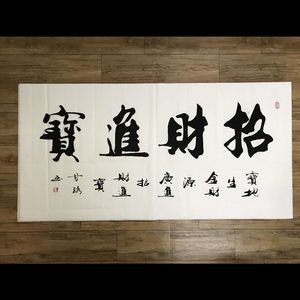 招財進寶
寶地生金財源廣進招財進寶